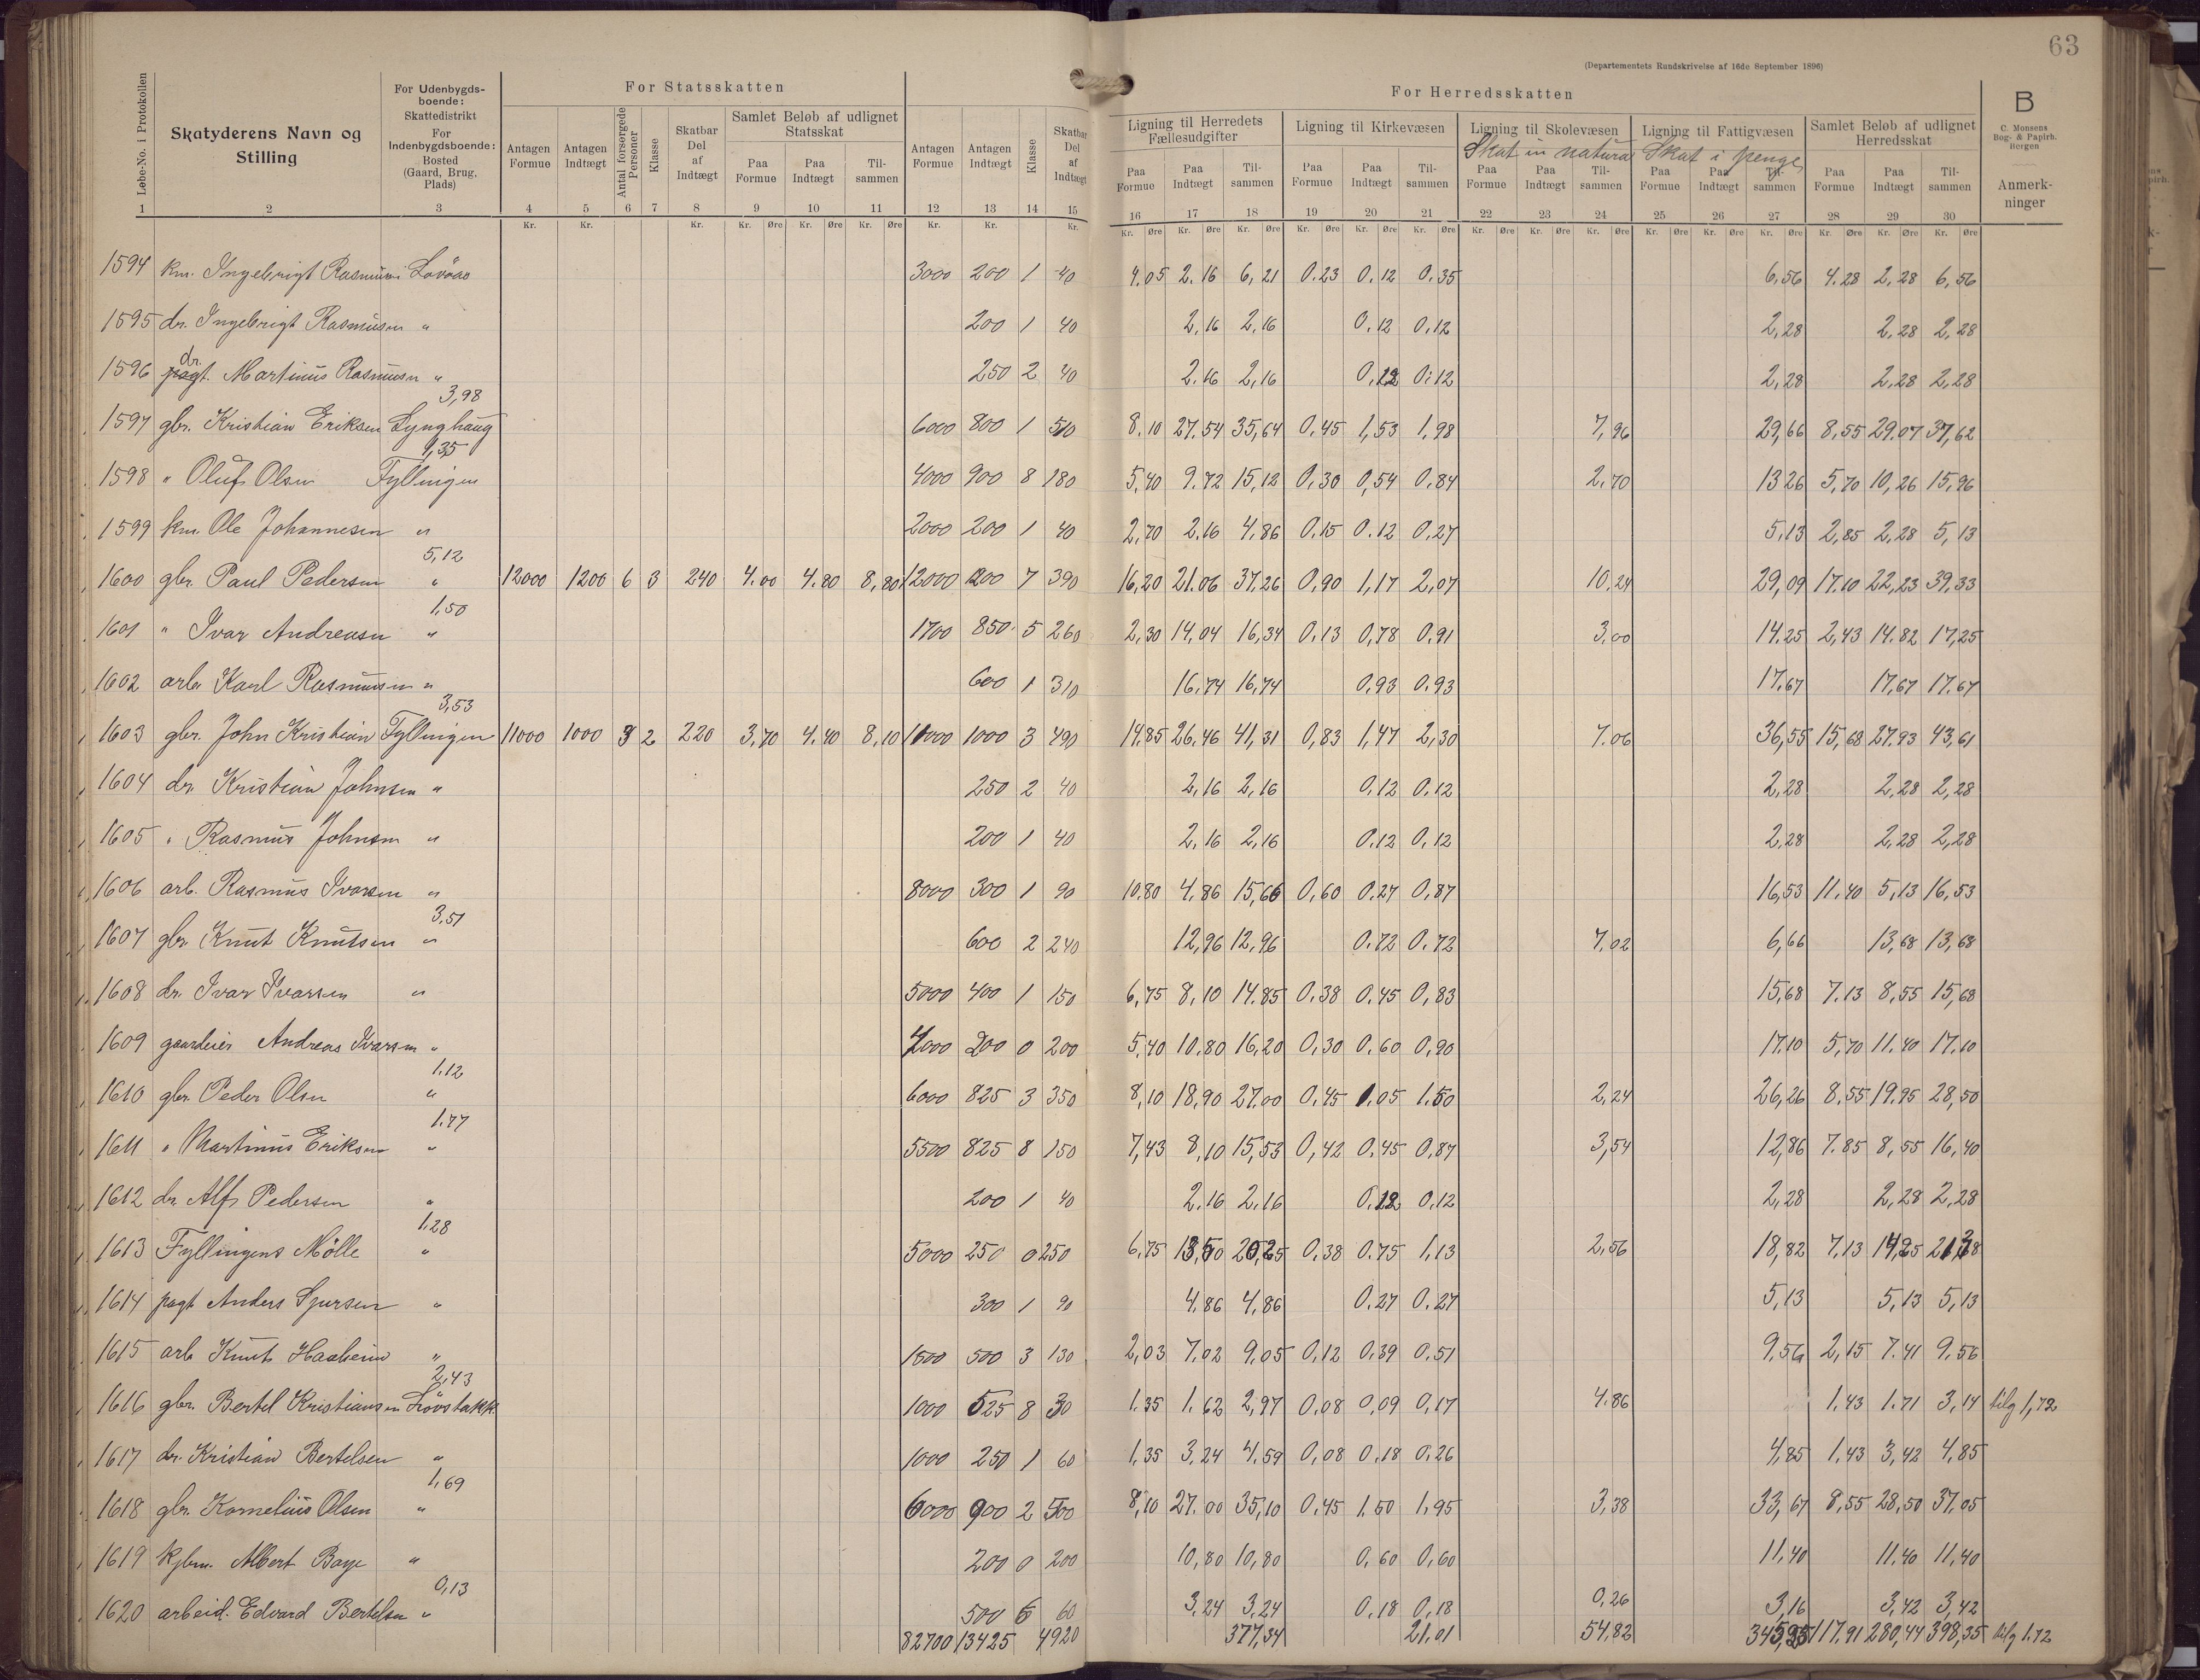 63
(Departementets Rundskrivelse af 16de September 1896)
For Statsskatten
For Herredsskatten
B
C. Monsens Bog- & Papirh. Bergen
Løbe-No. i Protokollen
Skatyderens Navn og Stilling
For Udenbygdsboende: Skattedistrikt For Indenbygdsboende: Bosted (Gaard, Brug, Plads)
Antagen Formue
Antagen Indtægt
Antal forsørgede Personer
Klasse
Skatbar Del af Indtægt
Samlet Beløb af udlignet Statsskat
Paa Formue
Paa Indtægt
Tilsammen
Antagen Formue
Antagen Indtægt
Klasse
Skatbar Del af Indtægt
Ligning til Herredets Fællesudgifter
Paa Formue
Paa Indtægt
Tilsammen
Ligning til Kirkevæsen
Paa Formue
Paa Indtægt
Tilsammen
Ligning til Skolevæsen
Skat in natura
Paa Formue
Paa Indtægt
Tilsammen
Ligning til Fattigvæsen
Skat i penge
Paa Formue
Paa Indtægt
Tilsammen
Samlet Beløb af udlignet Herredsskat
Paa Formue
Paa Indtægt
Tilsammen
Anmerkninger
1 2 3 4 5 6 7 8 9 10 11 12 13 14 15 16 17 18 19 20 21 22 23 24 25 26 27 28 29 30
Kr. Kr. Kr. Kr. Øre Kr. Øre Kr. Øre Kr. Kr. Kr. Kr. Øre Kr. Øre Kr. Øre Kr. Øre Kr. Øre Kr. Øre Kr. Øre Kr. Øre Kr. Øre Kr. Øre Kr. Øre Kr. Øre Kr. Øre Kr. Øre Kr. Øre
1594 km. Ingebrigt Rasmusen Løvaas 3000 200 1 40 4.05 2.16 6,21 0.23 0.12 0.35 6,56 4.28 2,28 6,56
1595 dr. Ingebrigt Rasmusen " 200 1 40 2,16 2,16 0.12 0.12 2,28 2,28 2,28
dr.
1596 pagt. Martinus Rasmusen " 250 2 40 2.16 2,16 0.12 0.12 2,28 2,28 2,28
3,98
1597 gbr. Kristian Eriksen Lynghaug 6000 800 1 510 8,10 27.54 35,64 0.45 1,53 1,98 7,96 29,66 8,55 29.07 37,62
1,35
1598 " Oluf Olsen Fyllingen 4000 900 8 180 5,40 9.72 15,12 0,30 0,54 0.84 2,70 13 26 5,70 10,26 15,96
1599 km. Ole Johannesen " 2000 200 1 40 2,70 2.16 4,86 0.15 0.12 0,27 5,13 2,85 2,28 5,13
5,12
1600 gbr. Paul Pedersen " 12000 1200 6 3 240 4.00 4.80 8,80 12000 1200 7 390 16,20 21.06 37,26 0,90 1,17 2,07 10,24 29,09 17.10 22,23 39,33
1,50
1601 " Ivar Andreasen " 1700 850 5 260 2,30 14,04 16,34 0,13 0,78 0,91 3,00 14.25 2,43 14.82 17,25
1602 arb. Karl Rasmusen " 600 1 310 16,74 16,74 0,93 0.93 17,67 17,67 17.67
3,53
1603 gbr. John Kristian Fyllingen 11000 1000 3 2 220 3,70 4.40 8,10 11000 1000 3 490 14,85 26,46 41,31 0,83 1,47 2,30 7.06 36,55 15,68 27.93 43,61
1604 dr. Kristian Johnsen " 250 2 40 2,16 2,16 0,12 0.12 2,28 2,28 2,28
1605 " Rasmus Johnsen " 200 1 40 2,16 2,16 0.12 0,12 2,28 2,28 2,28
1606 arb. Rasmus Ivarsen " 8000 300 1 90 10.80 4,86 15,66 0,60 0.27 0,87 16,53 11.40 5,13 16,53
3,51
1607 gbr. Knut Knutsen " 600 2 240 12,96 12,96 0.72 0.72 7.02 6,66 13,68 13,68
1608 dr. Ivar Ivarsen " 5000 400 1 150 6,75 8,10 14.85 0.38 0.45 0,83 15,68 7.13 8,55 15,68
1609 gaardeier Andreas Ivarsen " 4000 200 0 200 5,40 10.80 16,20 0,30 0.60 0,90 17.10 5,70 11.40 17.10
1.12
1610 gbr. Peder Olsen " 6000 825 3 350 8,10 18,90 27.00 0.45 1.05 1.50 2,24 26,26 8,55 19.95 28,50
1.77
1611 " Martinus Eriksen " 5500 825 8 150 7,43 8,10 15,53 0,42 0.45 0,87 3,54 12,86 7.85 8,55 16,40
1612 dr. Alfr Pedersen " 200 1 40 2.16 2.16 0.12 0,12 2,28 2,28 2,28
1,28
1613 Fyllingens Mølle " 5000 250 0 250 6,75 13,50 20,25 0,38 0.75 1,13 2,56 18,82 7,13 14,25 21,38
1614 pagt Anders Sjursen " 300 1 90 4,86 4,86 0.27 0.27 5,13 5,13 5,13
1615 arb Knut Haaheim " 1500 500 3 130 2,03 7.02 9.05 0,12 0,39 0.51 9,56 2,15 7.41 9.56
2,43
1616 gbr. Bertel Kristiansen Løvstakk. 1000 525 8 30 1.35 1.62 2,97 0,08 0,09 0,17 4.86 1,43 1.71 3,14 tilg 1,72
1617 dr. Kristian Bertelsen " 1000 250 1 60 1,35 3,24 4,59 0,08 0.18 0.26 4,85 1,43 3,42 4,85
1,69
1618 gbr. Kornelius Olsen " 6000 900 2 500 8,10 27.00 35,10 0.45 1.50 1,95 3,38 33,67 8,55 28,50 37.05
1619 kjbm. Albert Boye " 200 0 200 10,80 10,80 0,60 0,60 11,40 11.40 11,40
0,13
1620 arbeid. Edvard Bertelsen " 500 6 60 3,24 3,24 0,18 0,18 0,26 3,16 3,42 3,42
82700 13425 4920 377,34 21,01 54,82 345,25 117,91 280,44 398,35 tilg 1.72